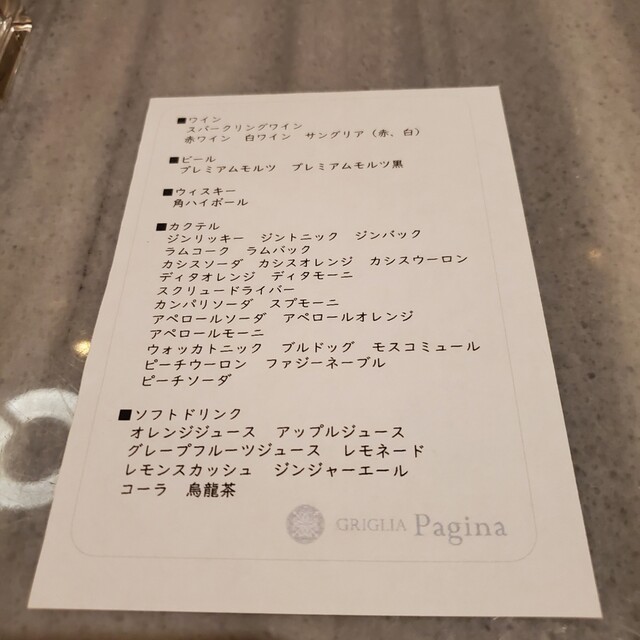 ■ワイン
スパークリングワイン
赤ワイン 白ワイン サングリア（赤、白）
■ビール
プレミアムモルツ プレミアムモルツ黒
■ウィスキー
角ハイボール
■カクテル
ジンリッキー ジントニック ジンバック
ラムコーク ラムバック
カシスソーダ カシスオレンジ カシスウーロン
ディタオレンジ ディタモーニ
スクリュードライバー
カンパリソーダ スプモーニ
アペロールソーダ アペロールオレンジ
アペロールモーニ
ウォッカトニック ブルドッグ モスコミュール
ピーチウーロン ファジーネーブル
ピーチソーダ
■ソフトドリンク
オレンジジュース アップルジュース
グレープフルーツジュース レモネード
レモンスカッシュ ジンジャーエール
コーラ 烏龍茶
GRIGLIA Pagina